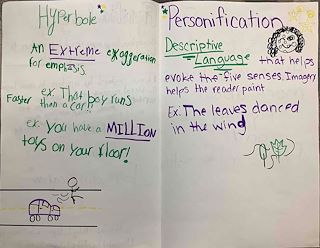 Hyperbole
An Extreme exaggeration
for emphasis.
ex. That boy runs
Faster than a car!
ex. You have a MILLION
toys on your floor!
Personification
Descriptive
Language that helps
evoke the five senses. Imagery
helps the reader paint
Ex: The leaves danced
in the wind